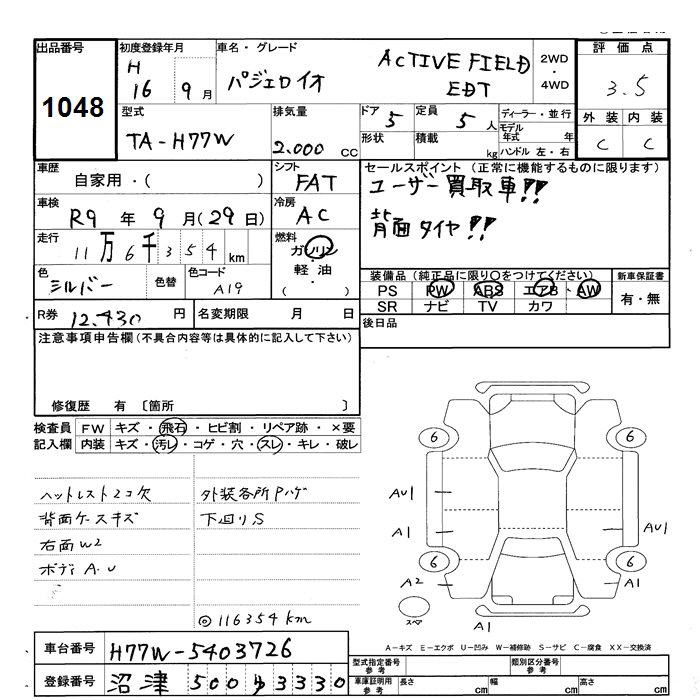 出品番号
1048
初度登録年月
H
16 9月
車名・グレード
パジェロイオ
ACTIVE FIELD
EDT
2WD
・
4WD
評価点
3.5
外装 内装
C C
型式
TA-H77W
排気量
2.000 CC
ドア 5
形状
定員 5 人
積載 kg
ディーラー・並行
モデル年式 年
ハンドル 左・右
車歴
自家用・( )
シフト
FAT
セールスポイント (正常に機能するものに限ります)
ユーザー買取車!!
背面タイヤ!!
車検
R9 年 9 月(29日)
冷房
AC
走行
11万6千354 km
燃料
ガソリン
軽油
( )
色
シルバー
色替
色コード
A19
装備品 (純正品に限り○をつけてください)
PS PW ABS エアB AW
SR ナビ TV カワ
新車保証書
有・無
R券 12,430 円
名変期限 月 日
後日品
注意事項申告欄(不具合内容等は具体的に記入して下さい)
修復歴 有 〔箇所 〕
検査員 FW キズ・飛石・ヒビ割・リペア跡・×要
記入欄 内装 キズ・汚レ・コゲ・穴・スレ・キレ・破レ
ヘットレスト2コ欠
外装各所Pハゲ
背面ケースキズ
下回りS
右面W2
ボディA.U
◎116354km
6 6
AU1
A1
AU1
6 6
A2
A1
スペア
A1
A-キズ E-エクボ U-凹み W-補修跡 S-サビ C-腐食 XX-交換済
車台番号
H77W-5403726
登録番号
沼津 500 ゆ 3330
型式指定番号
参考
類別区分番号
参考
車庫証明用
参考
長さ cm
幅 cm
高さ cm